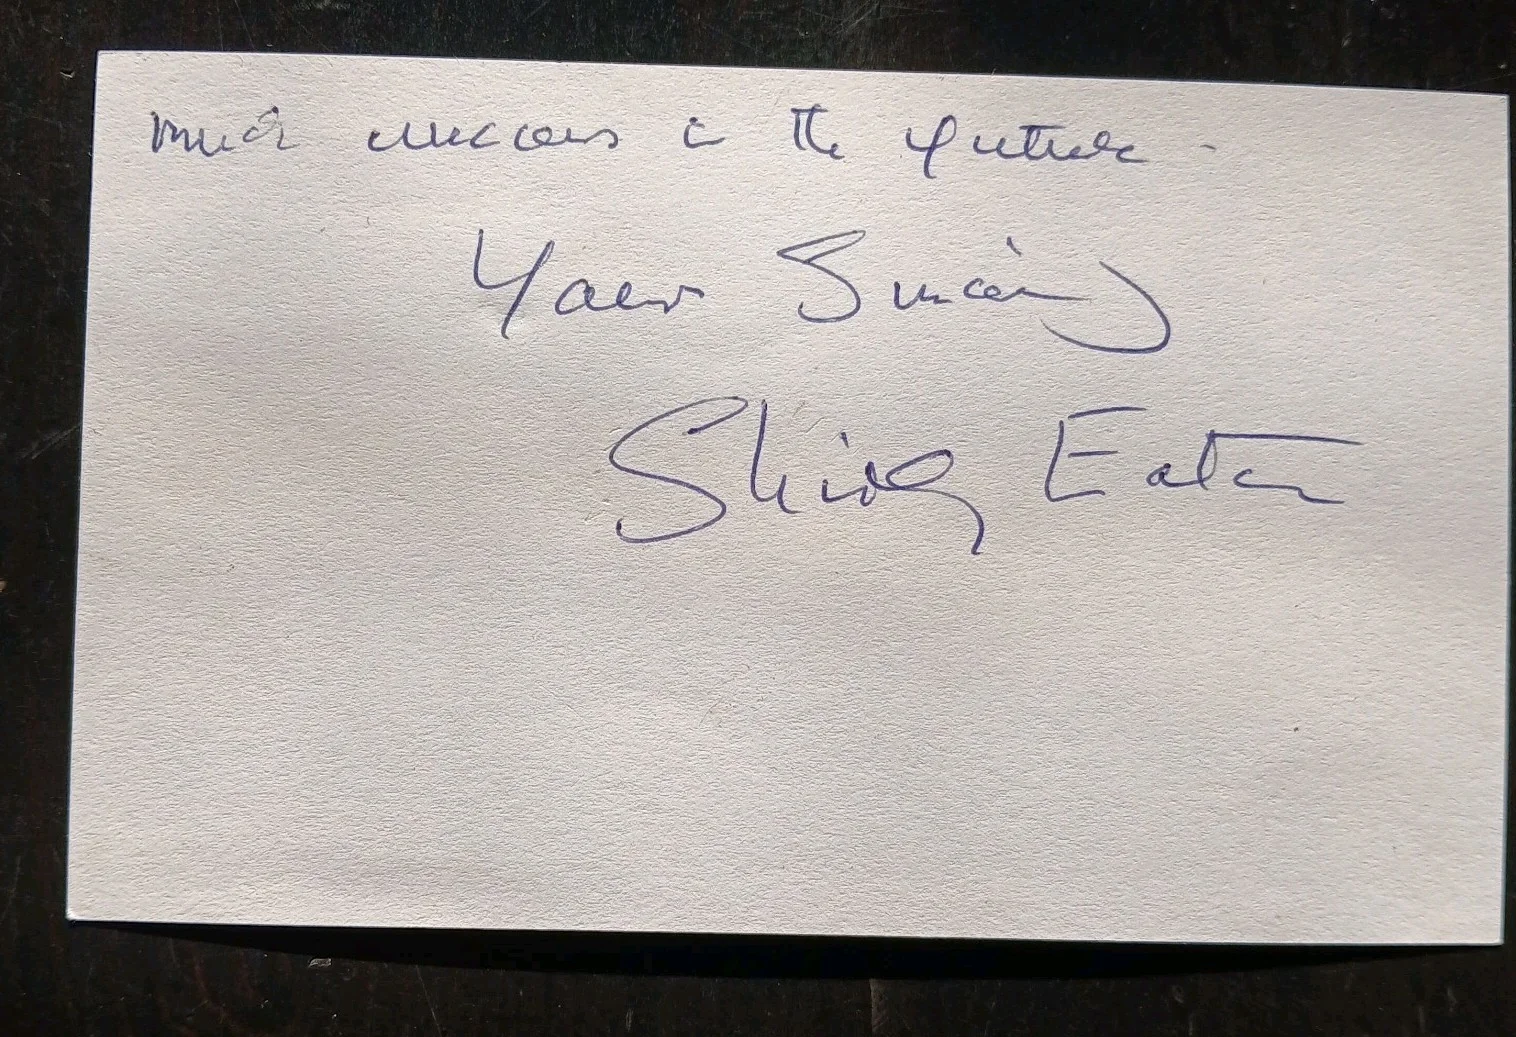 much success in the future.
Yours Sincerely
Shirley Eaton